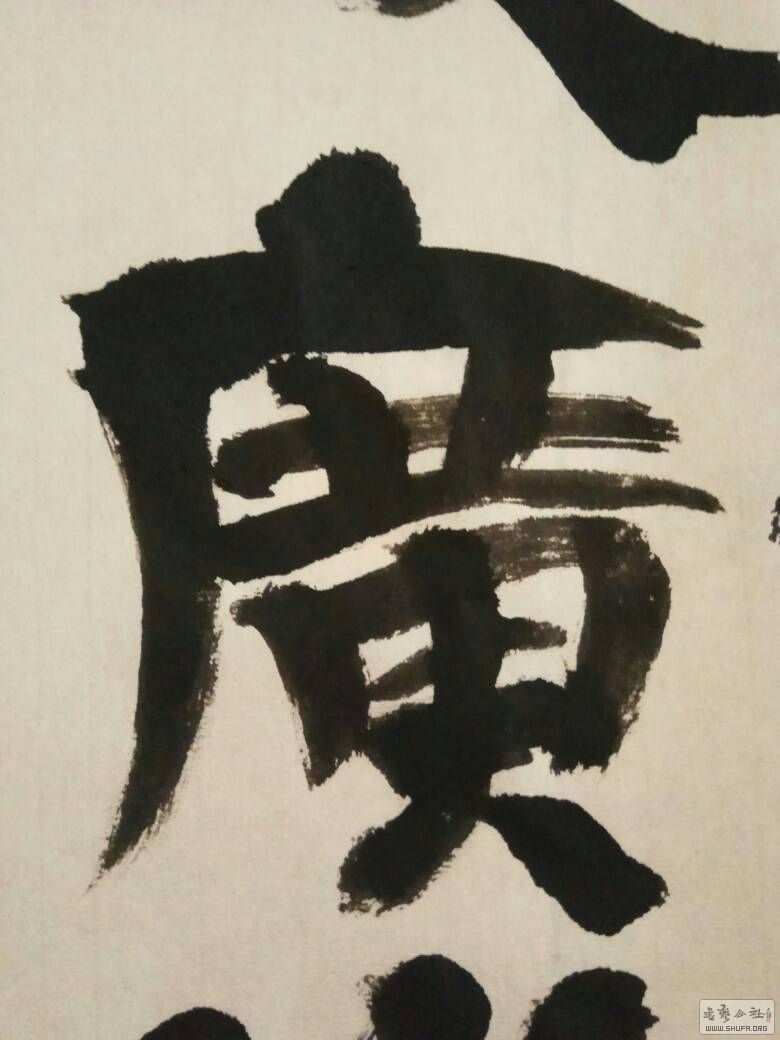 廣
書藝公社
WWW.SHUFA.ORG